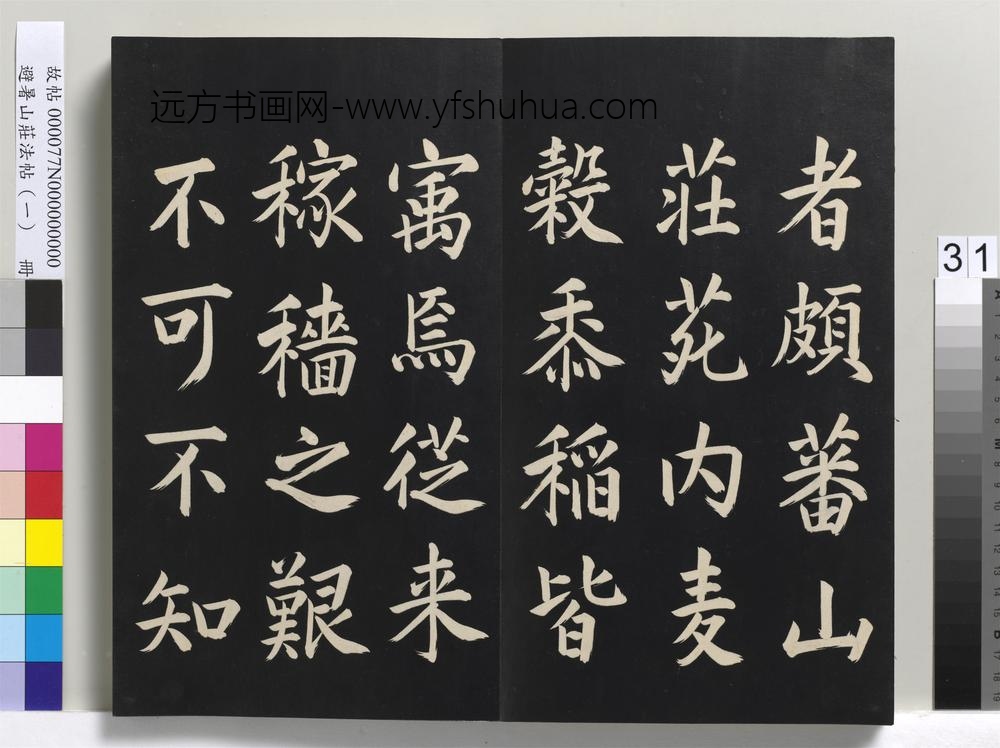 者頗蕃山
莊苑内麦
穀黍稻皆
寓焉從来
稼穡之艱
不可不知
远方书画网-www.yfshuhua.com
故帖 000077N000000000
避暑山莊法帖（一） 冊
31